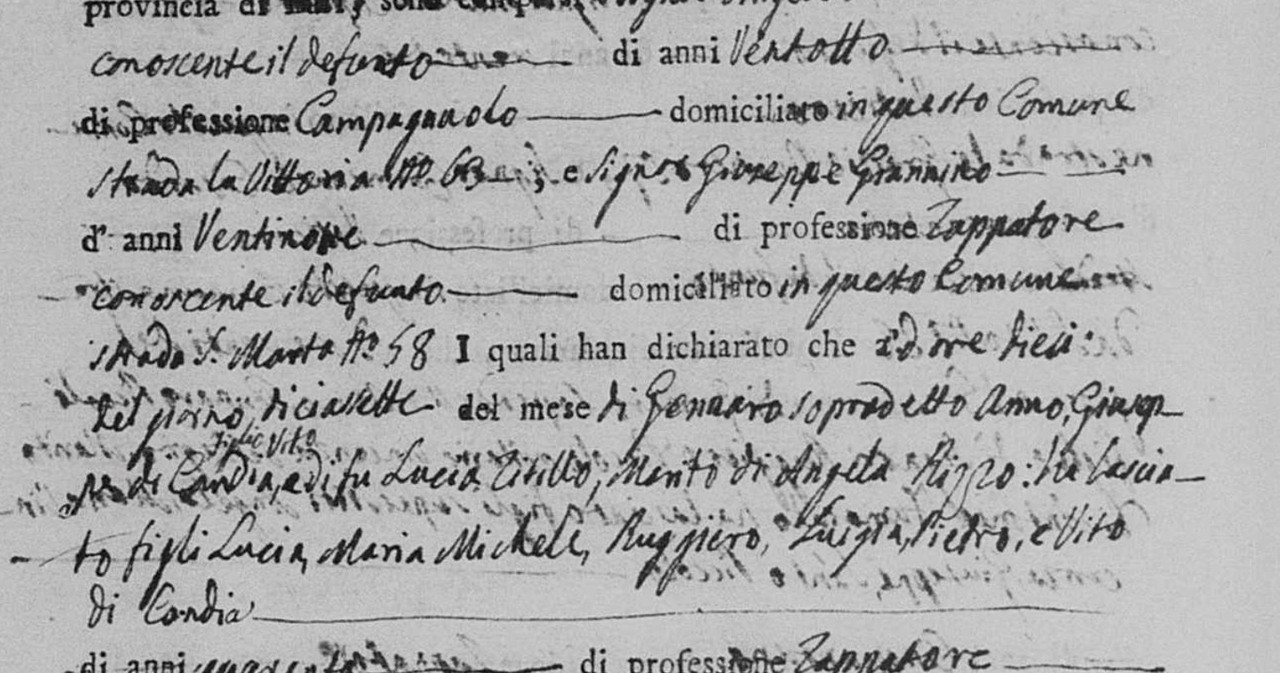 provincia di Bari, sono comparsi
conoscente il defunto di anni Ventotto
di professione Campagnuolo domiciliato in questo Comune
strada la Vittoria No. 63 ; e Signor Giuseppe Giannino
d' anni Ventinove di professione Zappatore
conoscente il defunto domiciliato in questo Comune
strada S. Marta No. 58 I quali han dichiarato che ad ore dieci
del giorno diciasette del mese di Gennaro sopradetto Anno, Giusep-
figlio Vito
pe di Candia, e di fu Lucia Zitillo, Marito di Angela Rizzo: ha lascia-
to figli Lucia, Maria Michele, Ruggiero, Luigia, Pietro, e Vito
di Candia
di anni quaranta di professione Zappatore